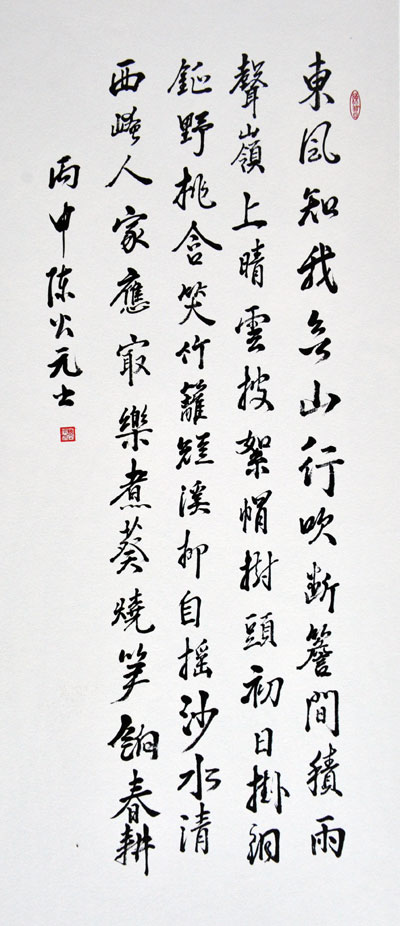 東風知我欲山行吹斷簷間積雨
聲嶺上晴雲披絮帽樹頭初日掛銅
鉦野桃含笑竹籬短溪柳自搖沙水清
西崦人家應最樂煮葵燒笋餉春耕
丙申陈元士